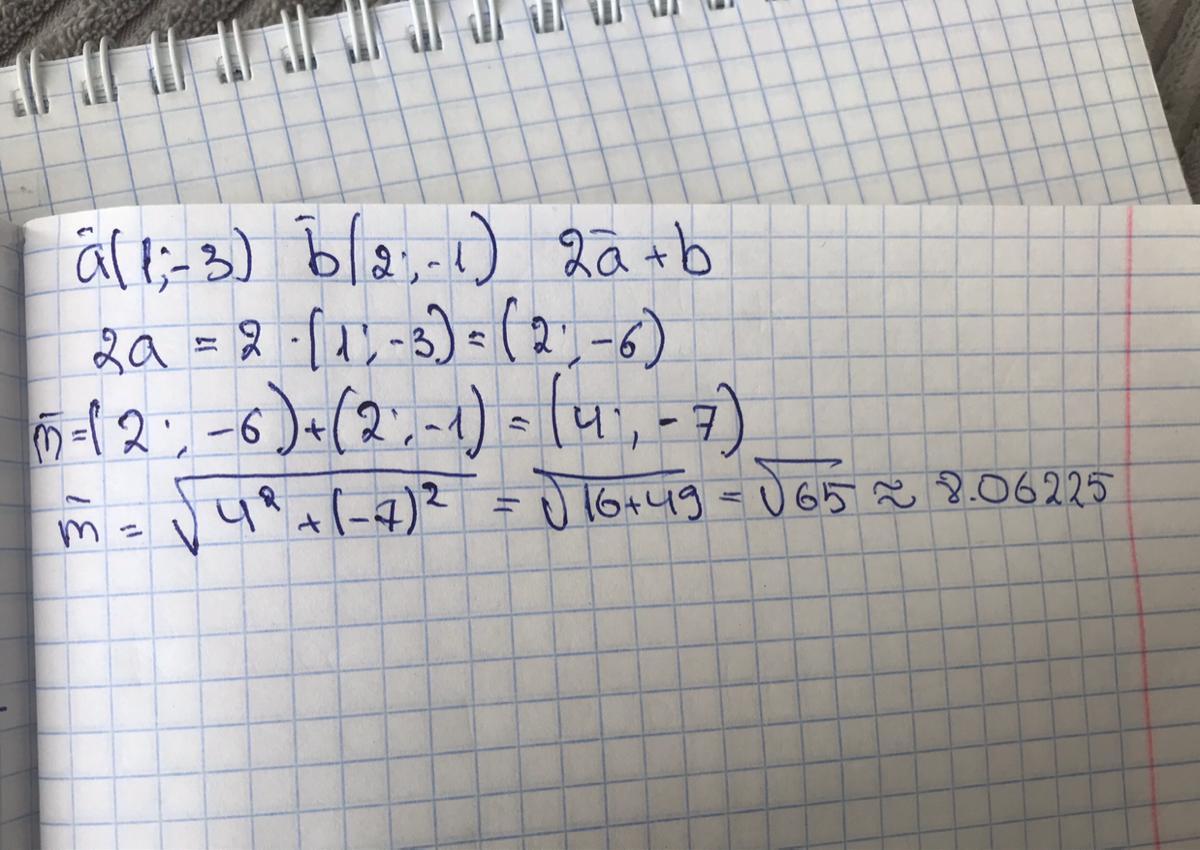 ā(1;-3) b̄(2;-1) 2ā+b
2a = 2 ·(1;-3)=(2;-6)
m̄=(2;-6)+(2;-1)=(4;-7)
m̄ = √4²+(-7)² = √16+49 = √65 ≈ 8.06225